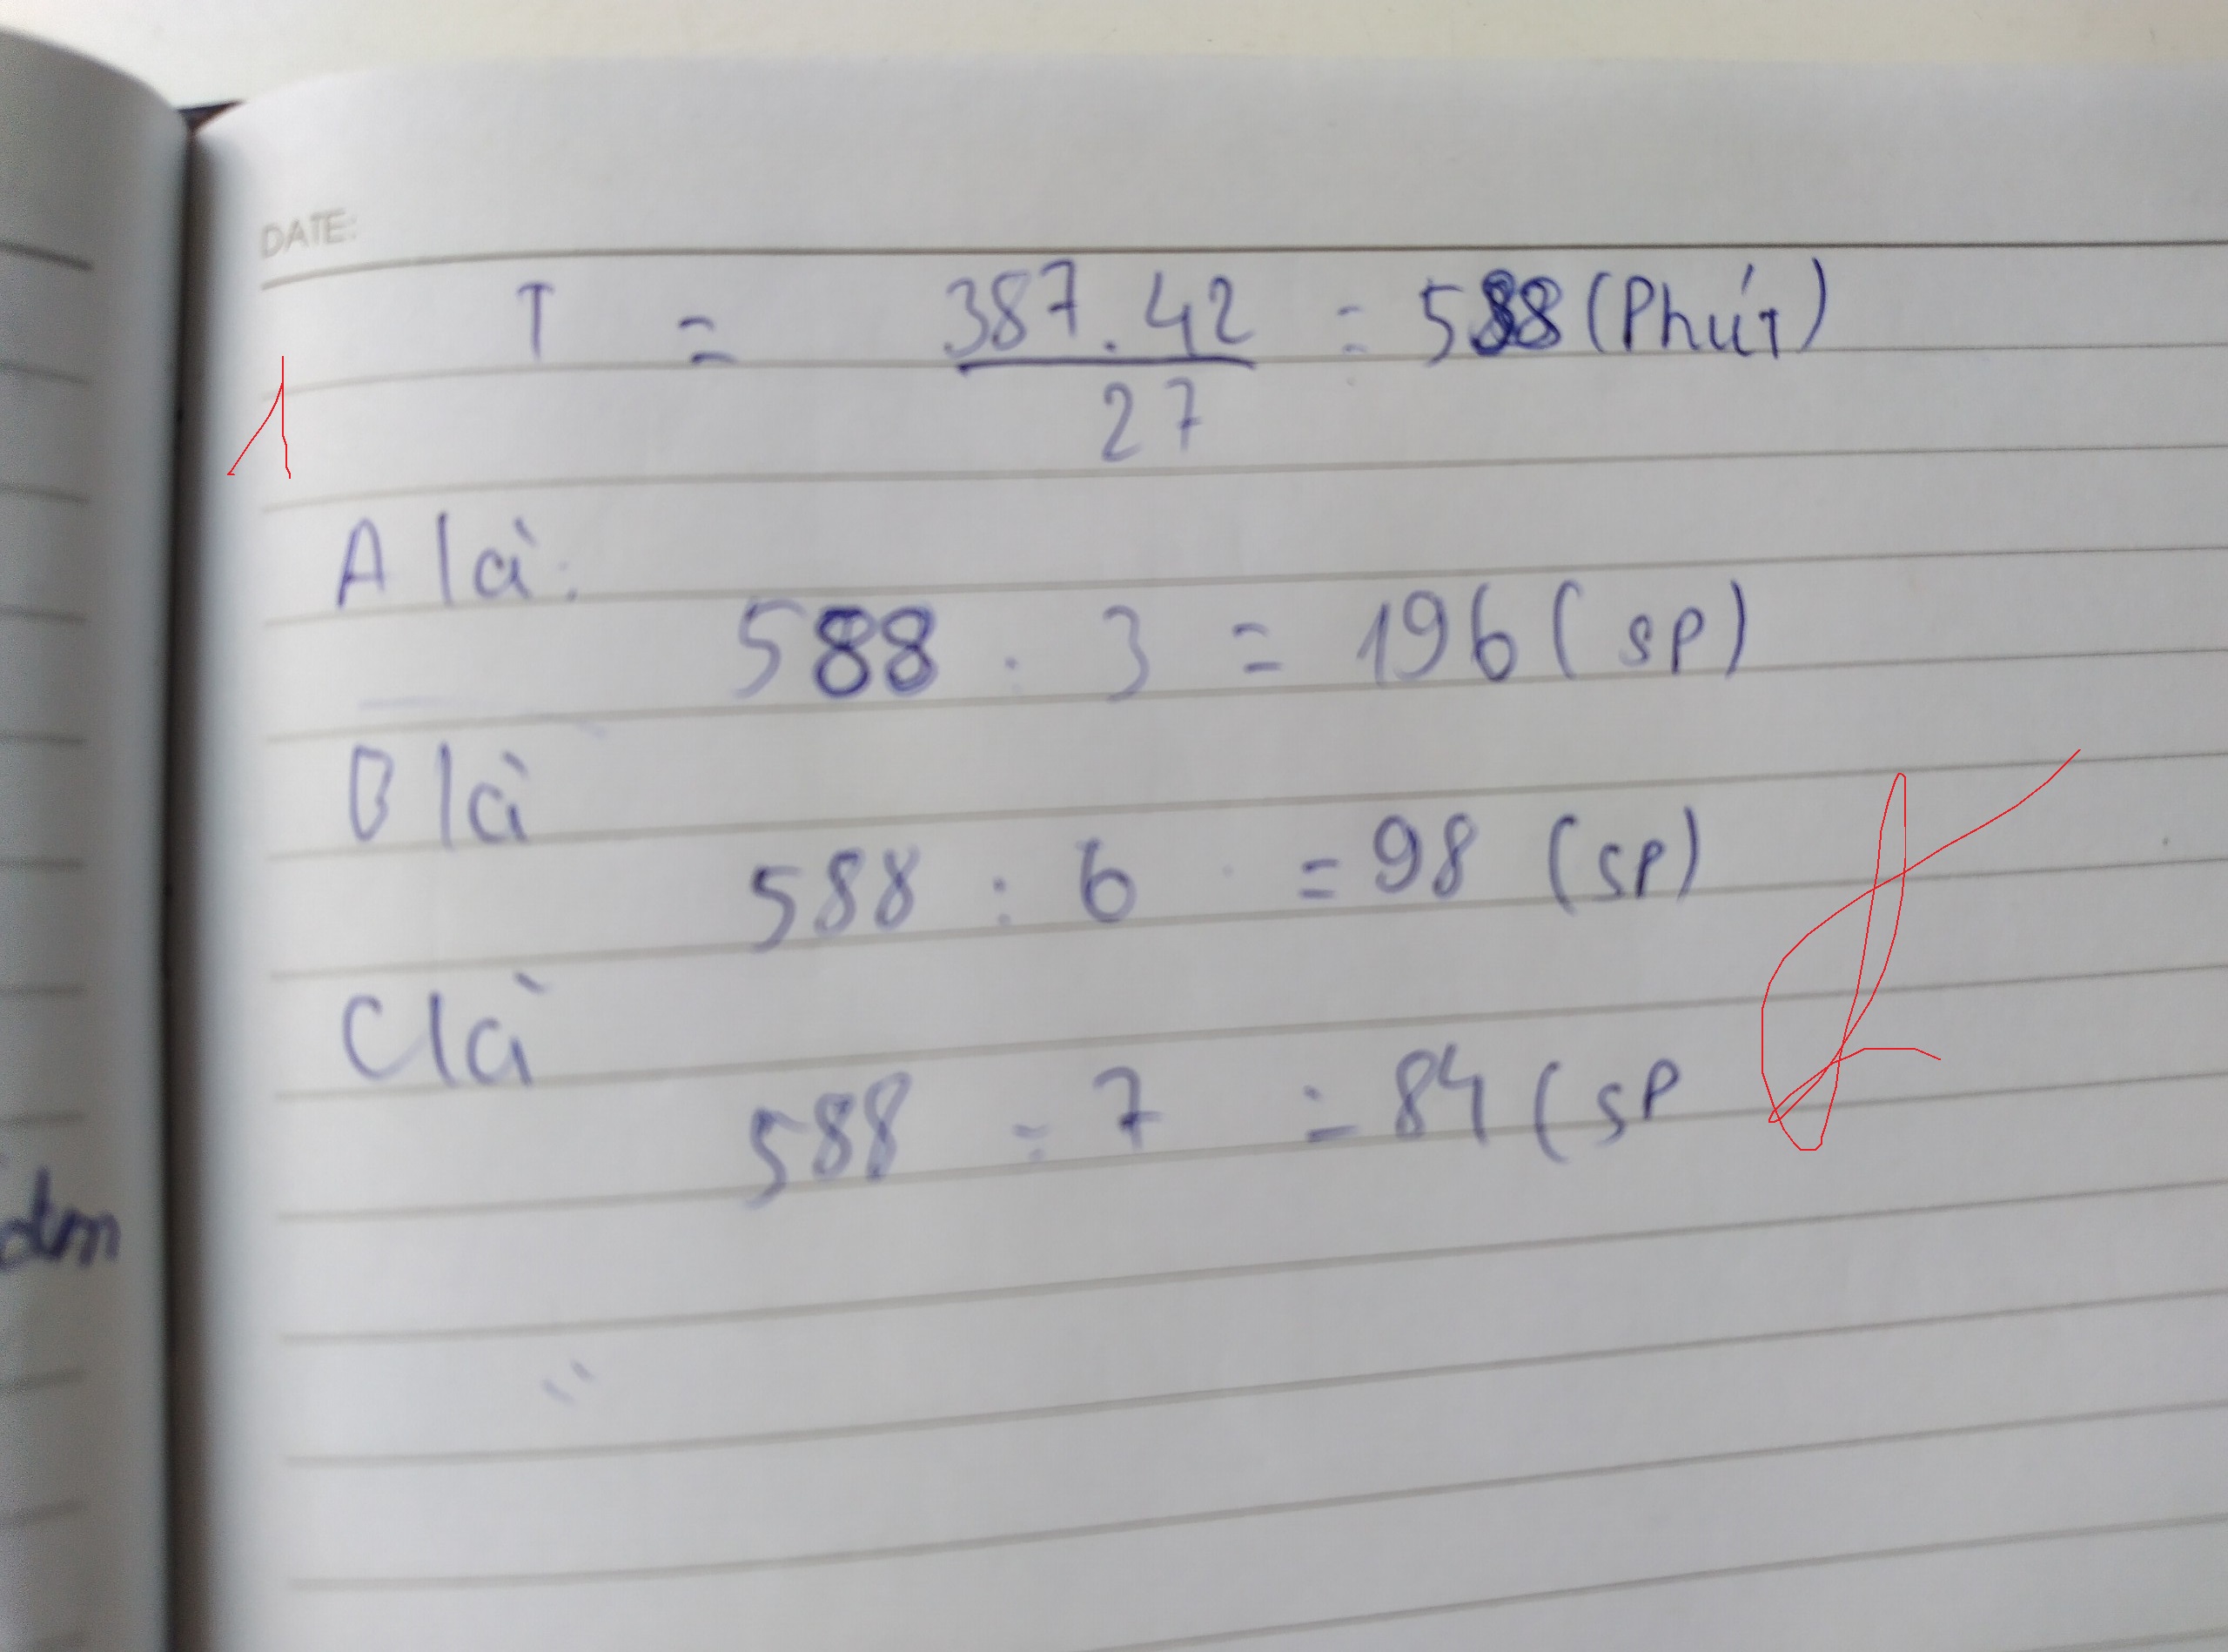 DATE:
T = 387.42 / 27 = 588 (Phút)
1
A là:
588 : 3 = 196 (SP)
B là
588 : 6 = 98 (SP)
C là
588 : 7 = 84 (SP
đm